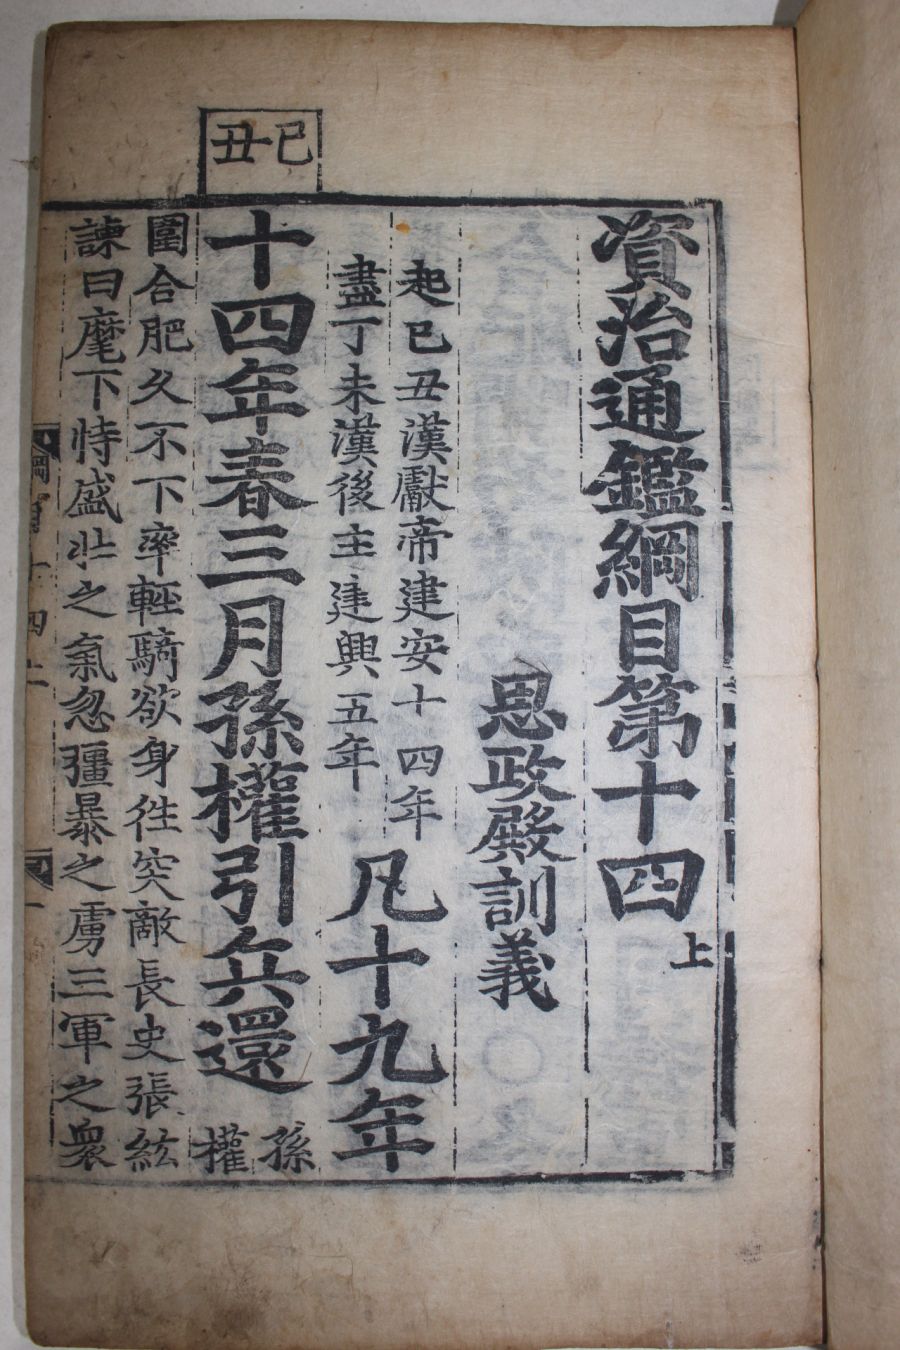 己丑
資治通鑑綱目第十四上
思政殿訓義
起己丑漢獻帝建安十四年
盡丁未漢後主建興五年
凡十九年
十四年春三月孫權引兵還
孫
權
圍合肥久不下率輕騎欲身徃突敵長史張紘
諫曰麾下恃盛壯之氣忽彊暴之虜三軍之衆
綱目十四上